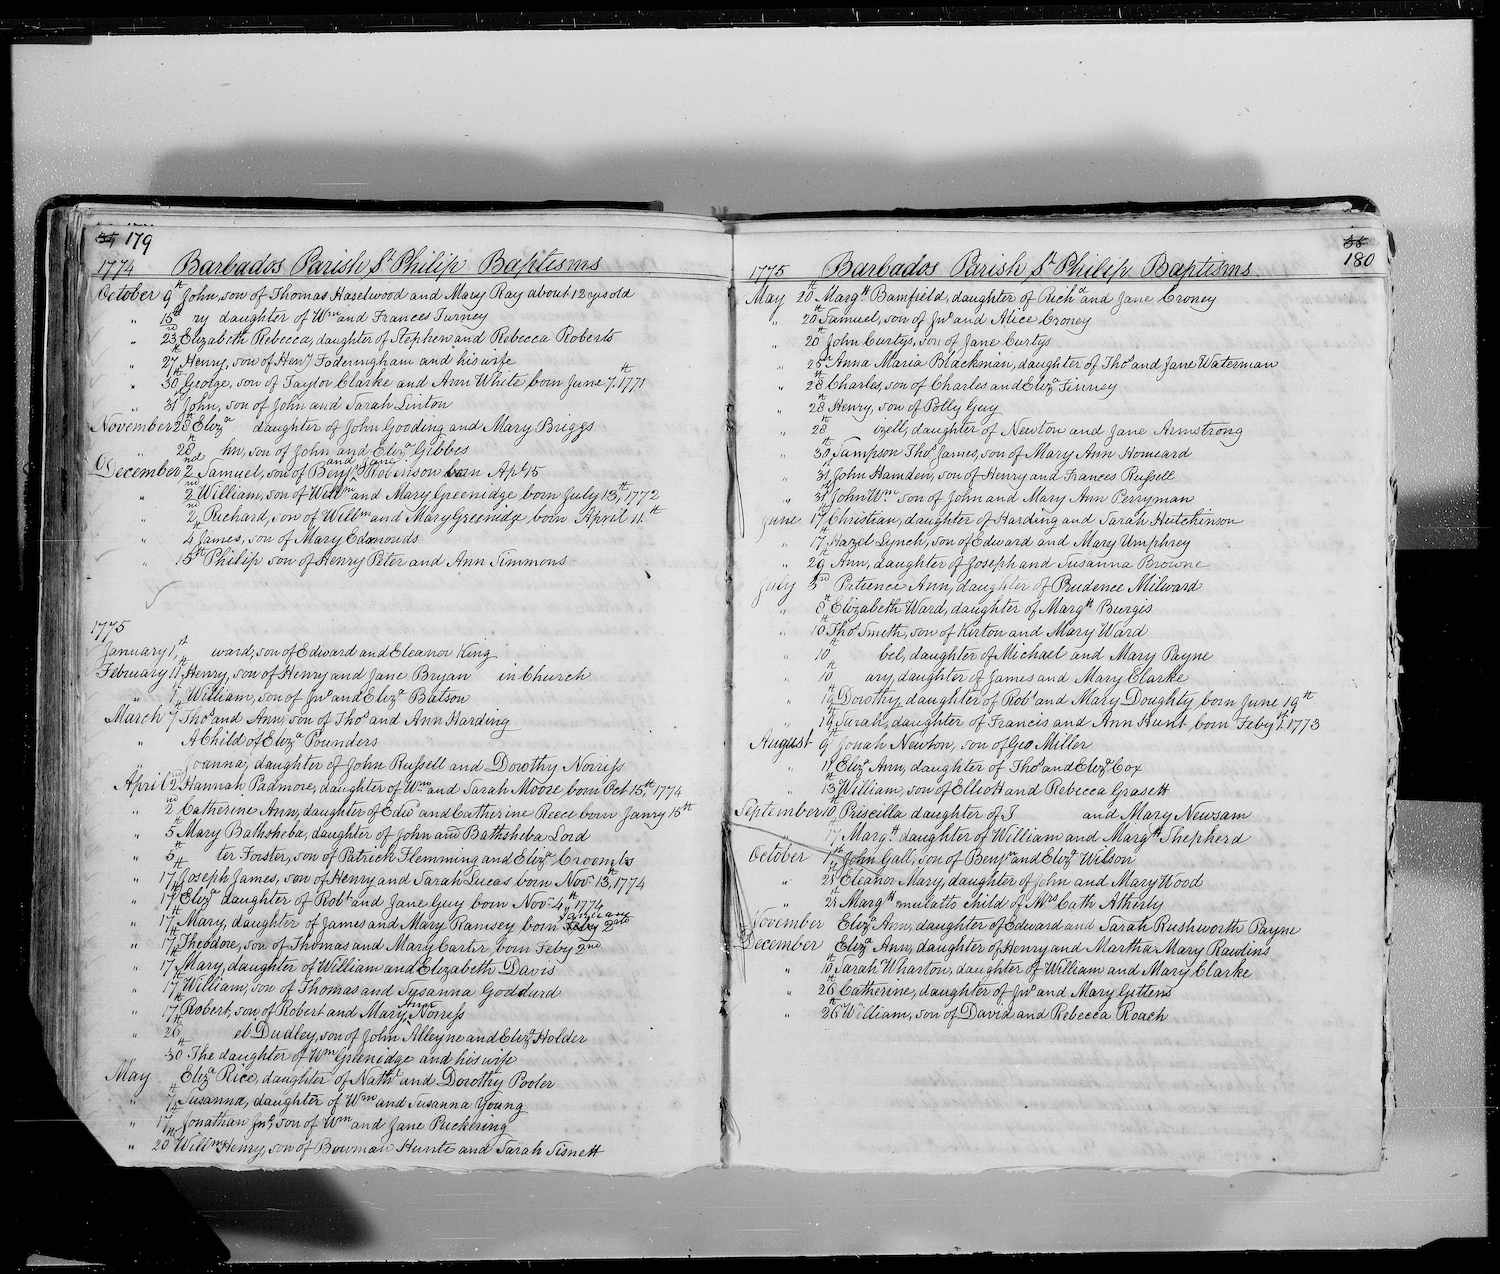 179
1774 Barbados Parish St Philip Baptisms
October 9th John, son of Thomas Haselwood and Mary Ray about 12 yrs old
" 15th ry daughter of Wm and Frances Turney
" 23rd Elizabeth Rebecca, daughter of Stephen and Rebecca Roberts
" 27th Henry, son of Heny Foderingham and his wife
" 30th George, son of Taylor Clarke and Ann White born June 7th 1771
" 31st John, son of John and Sarah Linton
November 28th Eliza daughter of John Gooding and Mary Briggs
" 28th hn, son of John and Eliza Gibbes
December 2nd Samuel, son of Benjn and Jane Robinson born Apl 15
" 2nd William, son of Willm and Mary Greenidge born July 13th, 1772
" 2nd Richard, son of Willm and Mary Greenidge, born April 11th
" 4th James, son of Mary Edmonds
" 15th Philip son of Henry Peter and Ann Simmons
1775
January 1st ward, son of Edward and Eleanor King
February 11th Henry, son of Henry and Jane Bryan in Church
" William, son of Jno and Eliza Batson
March 7th Thos and Ann, son of Thos and Ann Harding
" A Child of Eliza Pounders
" Joanna, daughter of John Russell and Dorothy Norriss
April 2nd Hannah Padmore, daughter of Wm and Sarah Moore born Oct 15th, 1774
" 2nd Catherine Ann, daughter of Edwd and Catherine Reece born Janry 15th
" 5th Mary Bathsheba, daughter of John and Bathsheba Lord
" 5th ter Forster, son of Patrick Flemming and Eliza Croombs
" 17th Joseph James, son of Henry and Sarah Lucas born Novr 13th, 1774
" 17th Eliza daughter of Robt and Jane Guy born Novr 4th 1774
" 17th Mary, daughter of James and Mary Ramsey born Feby January 2nd
" 17th Theodore, son of Thomas and Mary Carter born Feby 2nd
" 17th Mary, daughter of William and Elizabeth Davis
" 17th William, son of Thomas and Susanna Goddard
" 17th Robert, son of Robert and Mary Ann Norriss
" 26th el Dudley, son of John Alleyne and Eliza Holder
" 30th The daughter of Wm Greenidge and his wife
May Eliza Rice, daughter of Nathl and Dorothy Pooler
" 7th Susanna, daughter of Wm and Susanna Young
" 17th Jonathan Jno, son of Wm and Jane Puckering
" 20th Willm Henry, son of Bowman Hunte and Sarah Tisnett
180
1775 Barbados Parish St Philip Baptisms
May 20th Margt Bamfield, daughter of Richd and Jane Croney
" 20th Samuel, son of Jno and Alice Croney
20th John Curtys, son of Jane Curtys
" 25th Anna Maria Blackman, daughter of Thos and Jane Waterman
" 28th Charles, son of Charles and Eliza Finney
" 28th Henry, son of Polly Guy
" 28th ozell, daughter of Newton and Jane Armstrong
" 30th Sampson Thos James, son of Mary Ann Howard
" 31st John Hamden, son of Henry and Frances Russell
" 31st John Wm son of John and Mary Ann Perryman
June 17th Christian, daughter of Harding and Sarah Hutchinson
" 17th Hazel Lynch, son of Edward and Mary Umphrey
" 29th Ann, daughter of Joseph and Susanna Browne
July 3rd Patience Ann, daughter of Prudence Milward
" 8th Elizabeth Ward, daughter of Margt Burgis
" 10th Thos Smeth, son of Kirton and Mary Ward
" 10th bel, daughter of Michael and Mary Payne
" 10th ary, daughter of James and Mary Clarke
" 19th Dorothy, daughter of Robt and Mary Doughty born June 19th
" 19th Sarah, daughter of Francis and Ann Hunt born Feby 1st 1773
August 9th Jonah Newton, son of Geo Miller
" 11th Eliza Ann, daughter of Thos and Eliza Cox
" 13th William, son of Elliott and Rebecca Grasett
September 10th Priscilla daughter of J and Mary Newsam
" 17th Margt daughter of William and Margt Shepherd
October 1st John Gall, son of Benjn and Eliza Wilson
" 21st Eleanor Mary, daughter of John and Mary Wood
" 21st Margt mulatto child of Mrs Cath Atherly
November Eliza Ann, daughter of Edward and Sarah Rushworth Payne
December Eliza Ann, daughter of Henry and Martha Mary Rawlins
" 10th Sarah Wharton, daughter of William and Mary Clarke
" 26th Catherine, daughter of Jno and Mary Gittens
" 26th William, son of David and Rebecca Roach